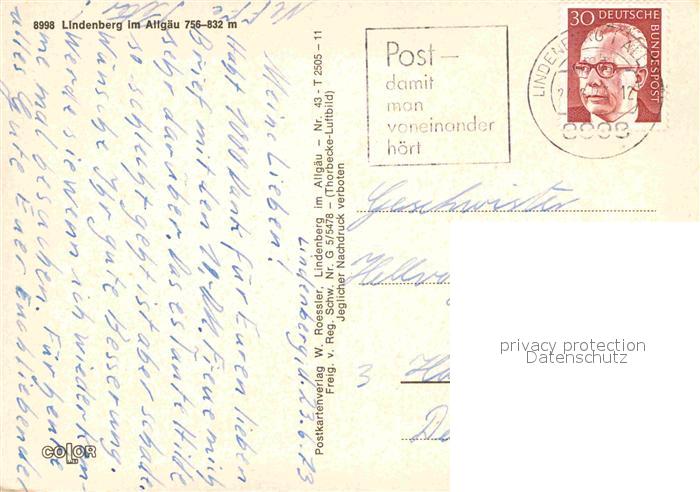 8998 Lindenberg im Allgäu 756-832 m
Lindenberg, d. 23.6.73
Meine Lieben!
Habt 1000 Dank für Euren lieben
Brief mit den 10 DM. Freue mich
sehr darüber. Das es Tante Hilde
so schlecht geht ist aber schade.
Wünsche Ihr gute Besserung.
Werde sie wenn ich wieder kom-
me mal besuchen. Für heute
alles Gute Euer Euch liebender
COLOR
Postkartenverlag W. Roessler, Lindenberg im Allgäu – Nr. 43 - T 2505 – 11
Freig. v. Reg. Schw. Nr. G 5/5478 – (Thorbecke-Luftbild)
Jeglicher Nachdruck verboten
Post –
damit
man
voneinander
hört
30 DEUTSCHE
BUNDESPOST
LINDENBERG
8998
Geschwister
3
privacy protection
Datenschutz